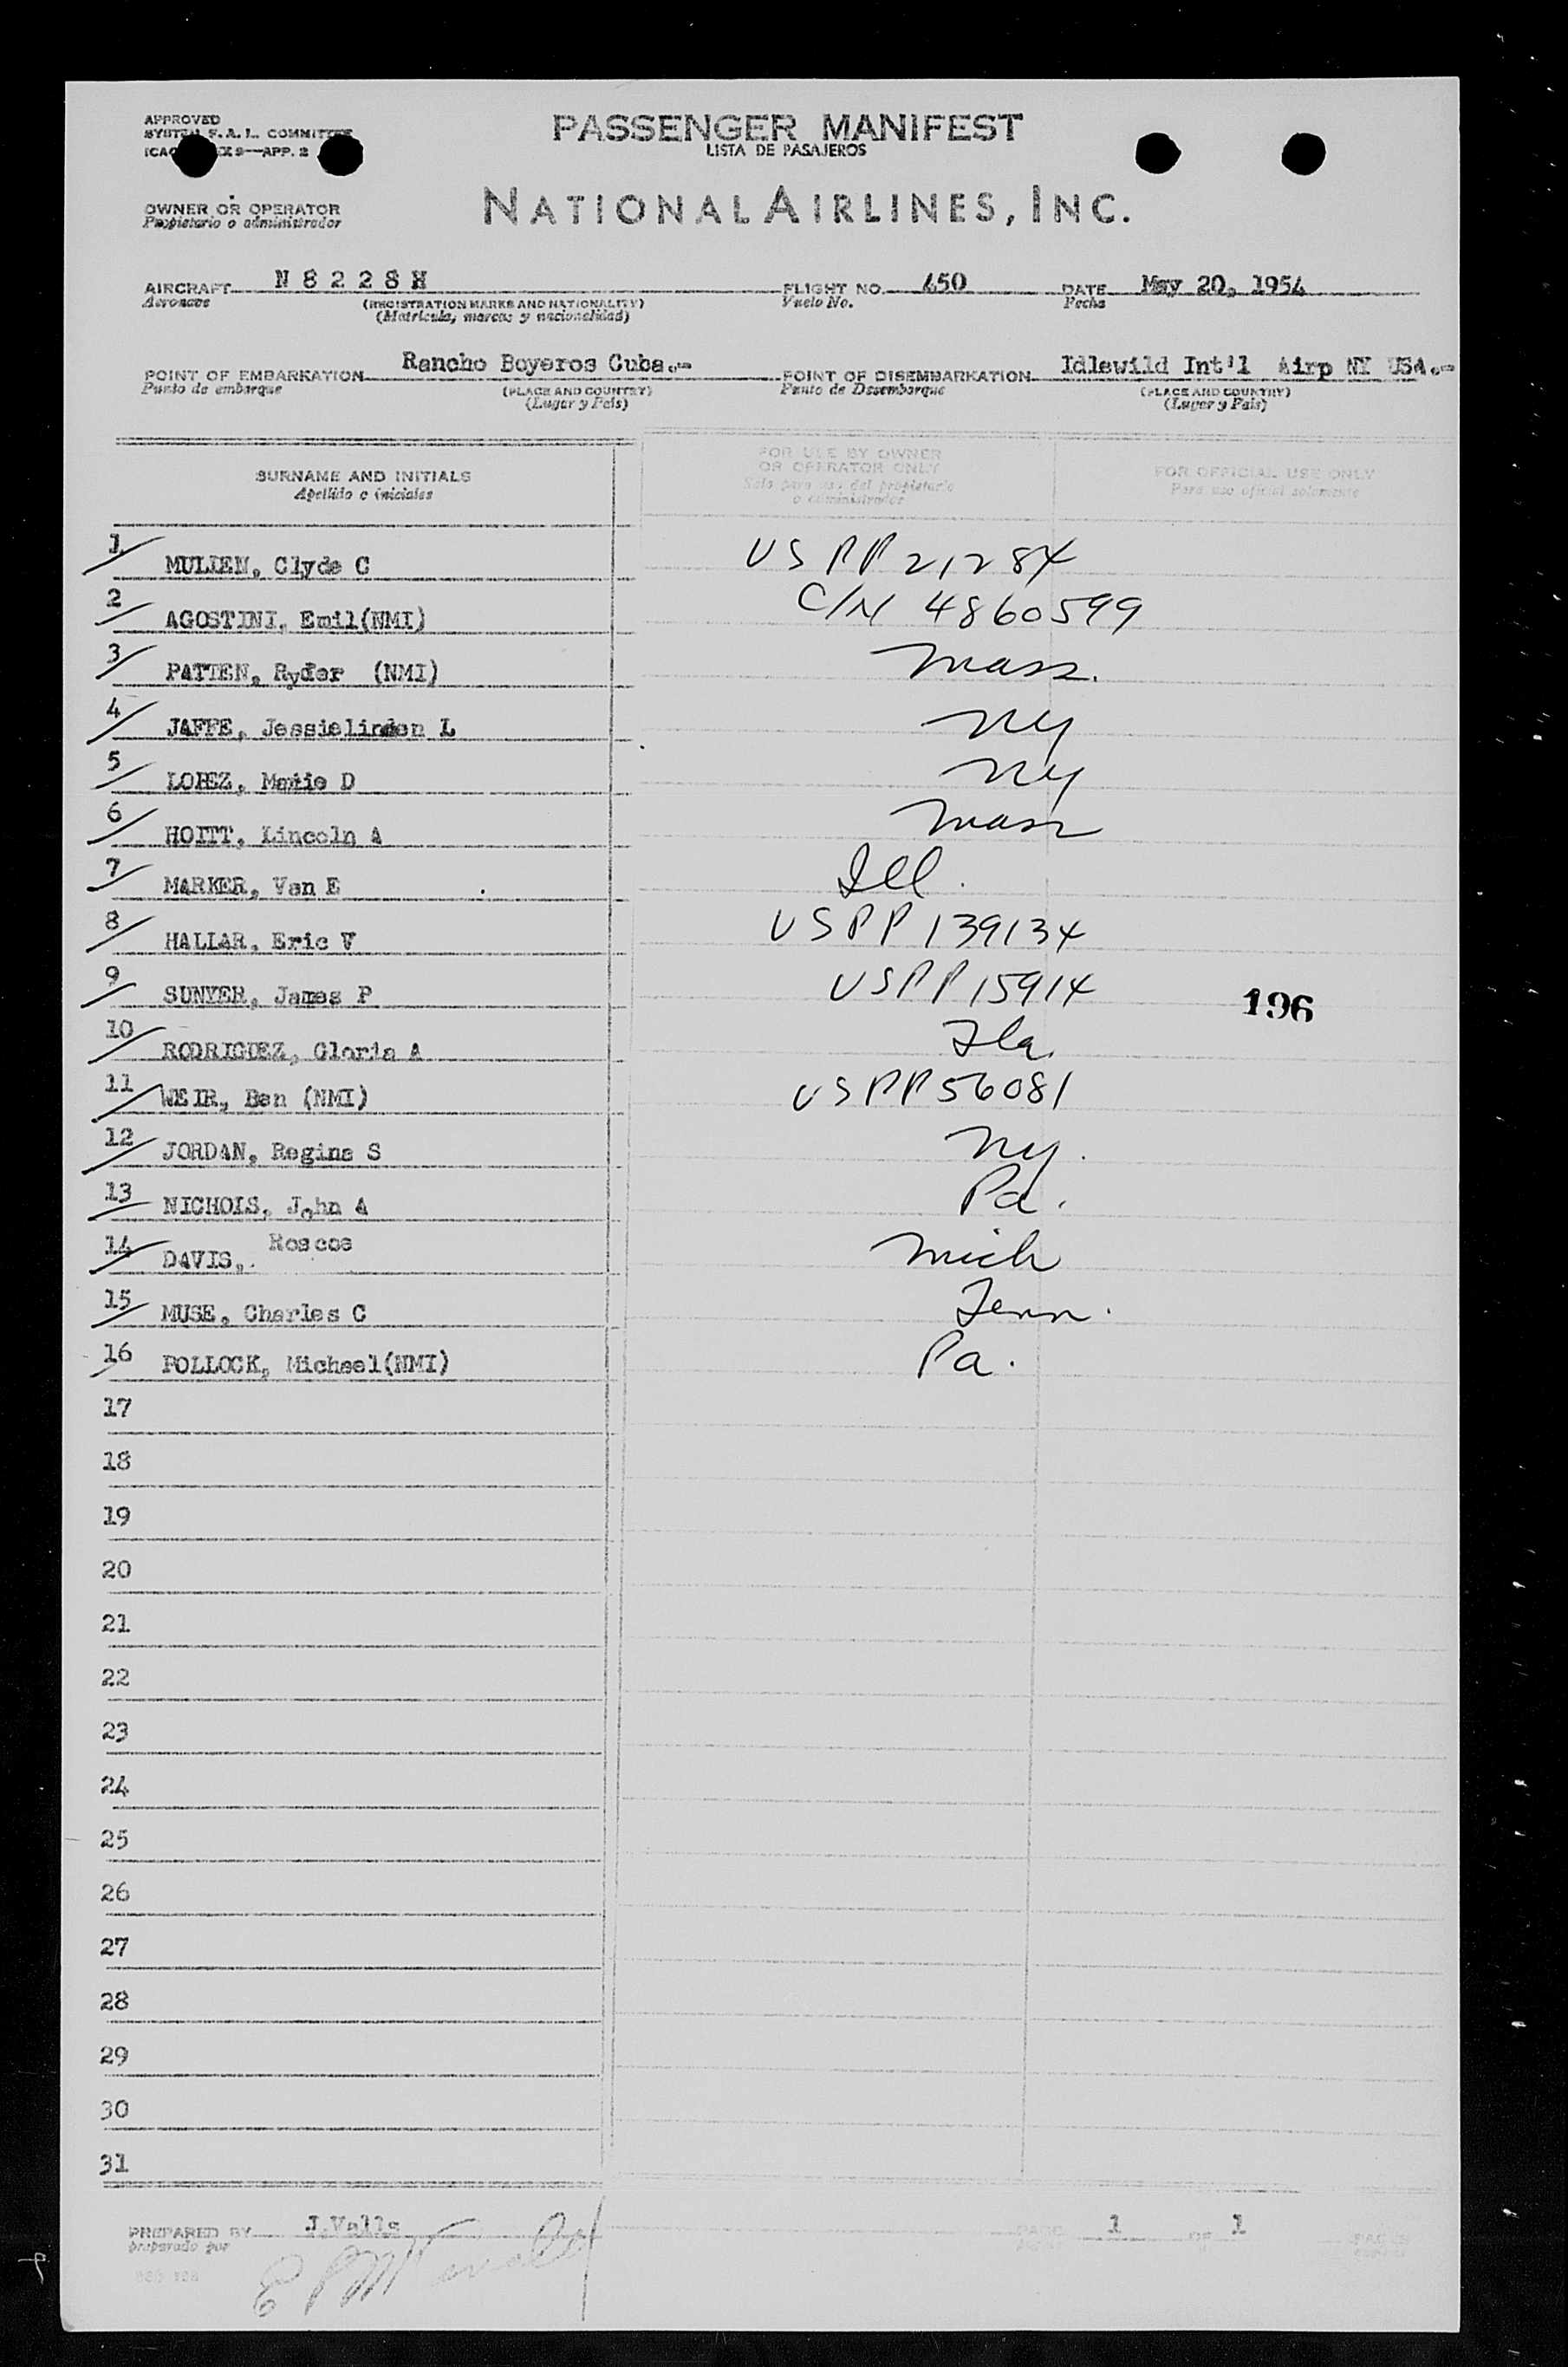 APPROVED
SYSTEM F.A.L. COMMITTEE
ICAO X 9—APP. 2
PASSENGER MANIFEST
LISTA DE PASAJEROS
OWNER OR OPERATOR
Propietario o administrador
NATIONAL AIRLINES, INC.
AIRCRAFT N 8 2 2 8 H FLIGHT NO. 450 DATE May 20, 1954
Aeronave (REGISTRATION MARKS AND NATIONALITY) Vuelo No. Fecha
(Matricula, marcas y nacionalidad)
POINT OF EMBARKATION Rancho Boyeros Cuba.- POINT OF DISEMBARKATION Idlewild Int'l Airp NY USA.-
Punto de embarque (PLACE AND COUNTRY) Punto de Desembarque (PLACE AND COUNTRY)
(Lugar y Pais) (Lugar y Pais)
SURNAME AND INITIALS FOR USE BY OWNER OR OPERATOR ONLY FOR OFFICIAL USE ONLY
Apellido e iniciales Solo para uso del propietario o administrador Para uso oficial solamente
1 MULLEN, Clyde C US PP 21284
2 AGOSTINI, Emil(NMI) C/N 4860599
3 PATTEN, Ryder (NMI) Mass.
4 JAFFE, Jessielinden L NY
5 LOPEZ, Matie D NY
6 HOITT, Lincoln A Mass
7 MARKER, Van E Ill.
8 HALLAR, Eric V USPP 139134
9 SUNYER, James P USPP 15914 196
10 RODRIGUEZ, Gloria A Fla.
11 WEIR, Ben (NMI) USPP 56081
12 JORDAN, Regina S NY.
13 NICHOLS, John A Pa.
14 DAVIS, Roscoe Mich
15 MUSE, Charles C Tenn.
16 POLLOCK, Michael(NMI) Pa.
17
18
19
20
21
22
23
24
25
26
27
28
29
30
31
PREPARED BY J.Valls PAGE 1 OF 1 PAGES
preparado por